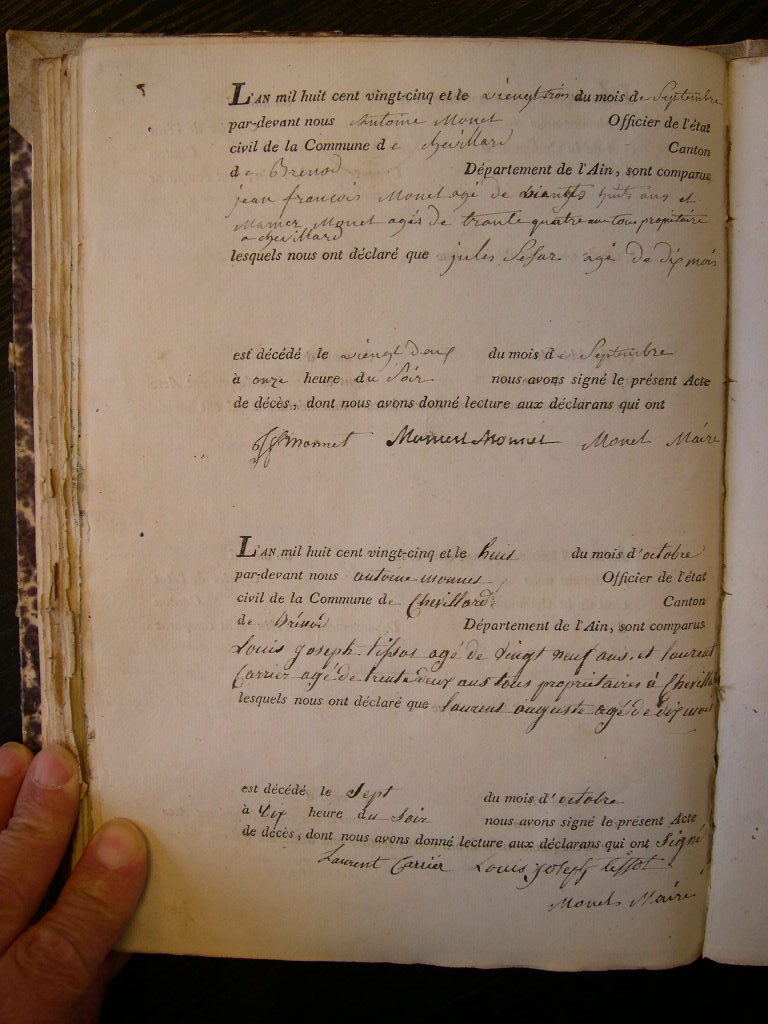 L'AN mil huit cent vingt-cinq et le viengt trois du mois de Septembre
par-devant nous Antoine Monet Officier de l'état
civil de la Commune de chevillard Canton
de Brenod Département de l'Ain, sont comparus
jean francois Monet agé de huits ans et
Mamer Monet agés de trante quatre ans tous propritaire
a chevillard
lesquels nous ont déclaré que jules Sesar agé de dix mois
est décédé le viengt deux du mois de Septembre
à onze heure du Soir nous avons signé le présent Acte
de décès, dont nous avons donné lecture aux déclarans qui ont
Monnet Mamert Monnet Monet Maire
L'AN mil huit cent vingt-cinq et le huit du mois d'octobre
par-devant nous antoine monnet Officier de l'état
civil de la Commune de Chevillard Canton
de Brénod Département de l'Ain, sont comparus
Louis joseph tissot agé de vingt neuf ans, et laurent
Carrier agé de trente deux ans tous propriétaires à Chevillard
lesquels nous ont déclaré que laurent auguste agé de dix mois
est décédé le Sept du mois d'octobre
à Dix heure du Soir nous avons signé le présent Acte
de décès, dont nous avons donné lecture aux déclarans qui ont Signé
Laurent Carrier Louis joseph tissot
Monet Maire